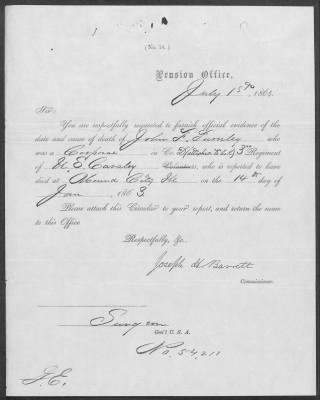 (No. 14.)
Pension Office,
July 1st, 1863.
Sir:
You are respectfully requested to furnish official evidence of the
date and cause of death of John F. Turnley, who
was a Corporal in Co. 3rd Regiment
of U S Cavalry Volunteers, who is reported to have
died at Mound City Ills on the 14th day of
Jan, 1863.
Please attach this Circular to your report, and return the same
to this Office
Respectfully, &c.
Joseph H Barrett
Commissioner.
Surgeon
Gen'l U. S. A.
No. 34,211